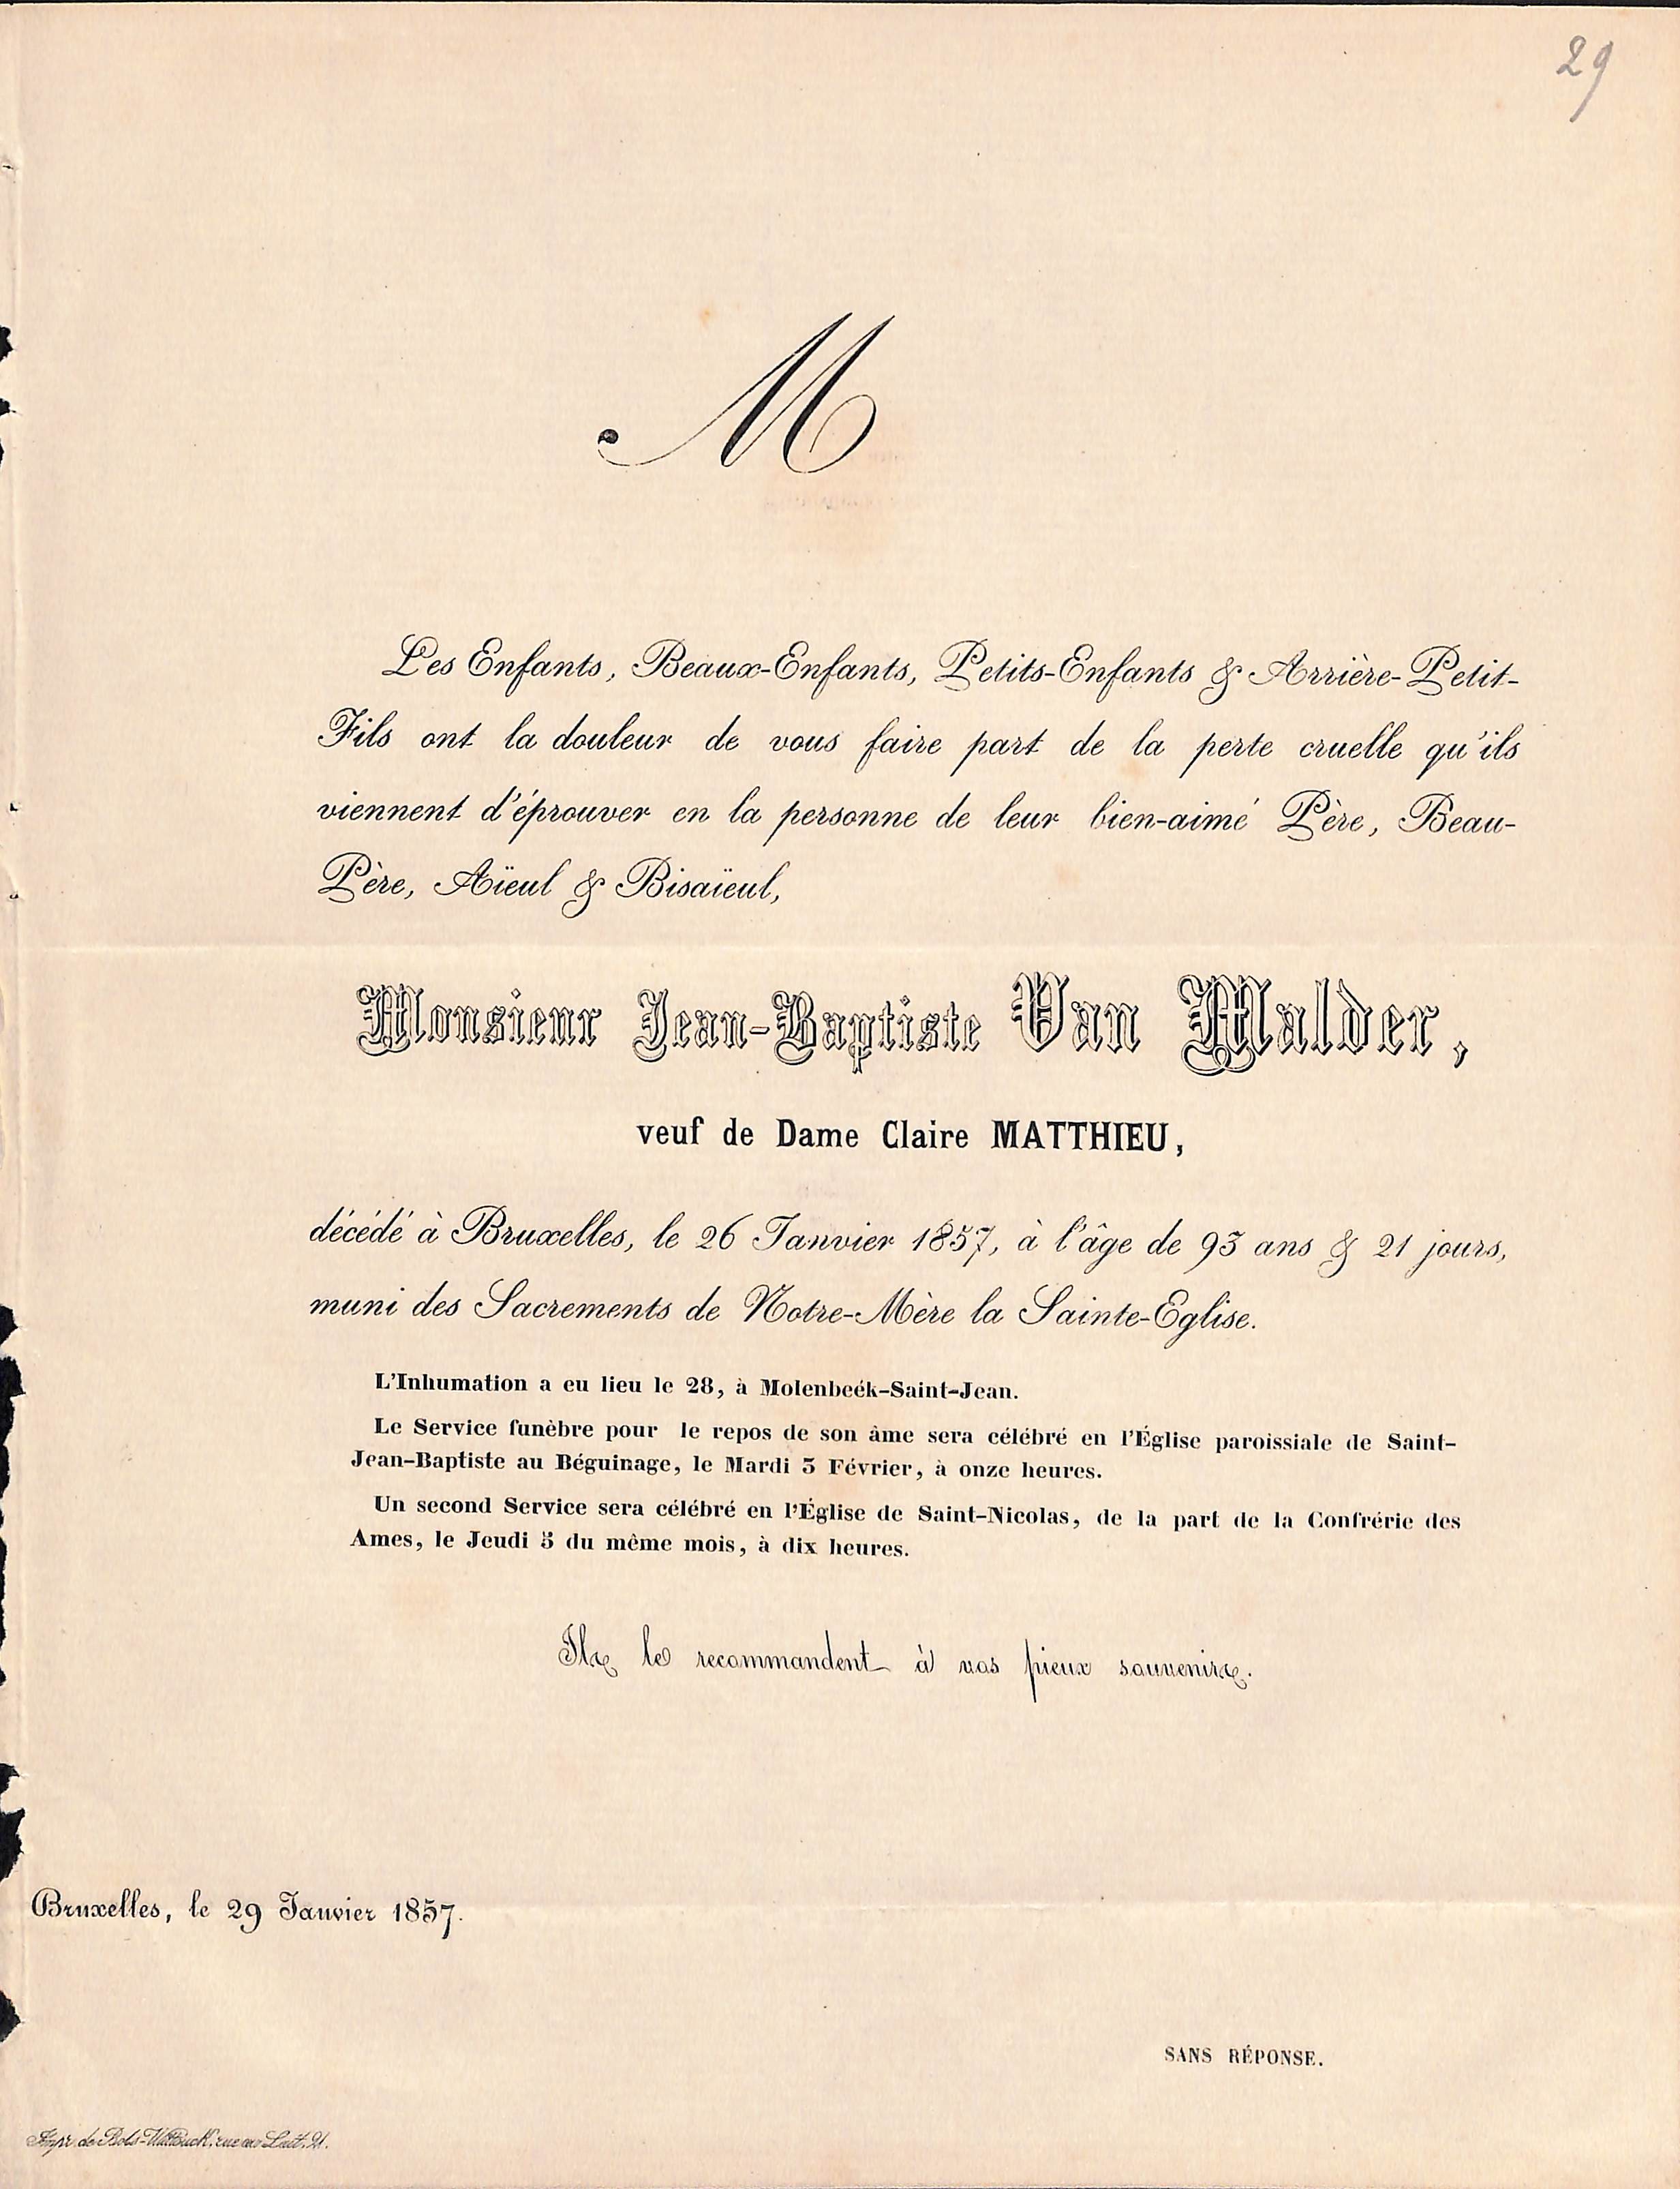 29
M
Les Enfants, Beaux-Enfants, Petits-Enfants & Arrière-Petit-
Fils ont la douleur de vous faire part de la perte cruelle qu'ils
viennent d'éprouver en la personne de leur bien-aimé Père, Beau-
Père, Aïeul & Bisaïeul,
Monsieur Jean-Baptiste Van Malder,
veuf de Dame Claire MATTHIEU,
décédé à Bruxelles, le 26 Janvier 1857, à l'âge de 93 ans & 21 jours,
muni des Sacrements de Notre-Mère la Sainte-Eglise.
L'Inhumation a eu lieu le 28, à Molenbeék-Saint-Jean.
Le Service funèbre pour le repos de son âme sera célébré en l'Église paroissiale de Saint-
Jean-Baptiste au Béguinage, le Mardi 3 Février, à onze heures.
Un second Service sera célébré en l'Église de Saint-Nicolas, de la part de la Confrérie des
Ames, le Jeudi 5 du même mois, à dix heures.
Ils le recommandent à vos pieux souvenirs.
Bruxelles, le 29 Janvier 1857.
SANS RÉPONSE.
Impr. de Bols-Wittouck, rue au Lait, 21.